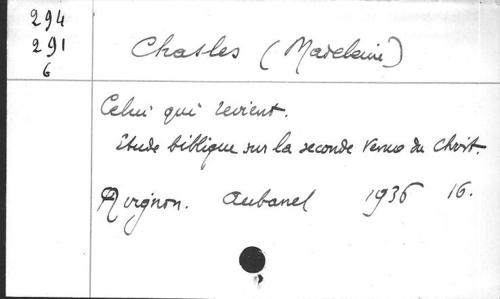 294
291
6
Chasles (Madeleine)
Celui qui revient.
Etude biblique sur la seconde venue du Christ.
Avignon. Aubanel 1936 16.